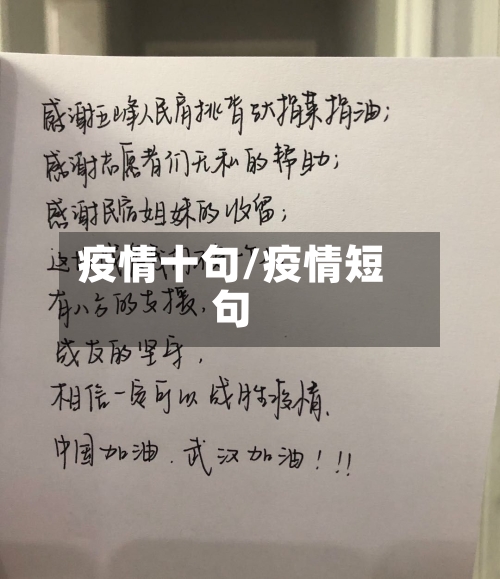 感谢五峰人民肩挑背驮捐菜捐油；
感谢志愿者们无私的帮助；
感谢民宿姐妹的收留；
这
疫情十句/疫情短
句
有八方的支援，
战友的坚守，
相信一定可以战胜疫情。
中国加油．武汉加油！!!